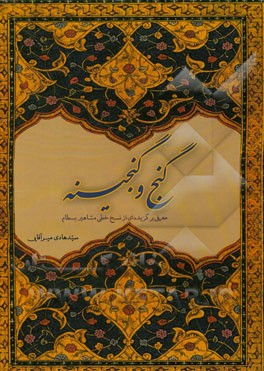 گنج و گنجینه
معرفی برگزیده‌ای از نسخ خطی مشاهیر بسطام
سیدهادی میرآقایی